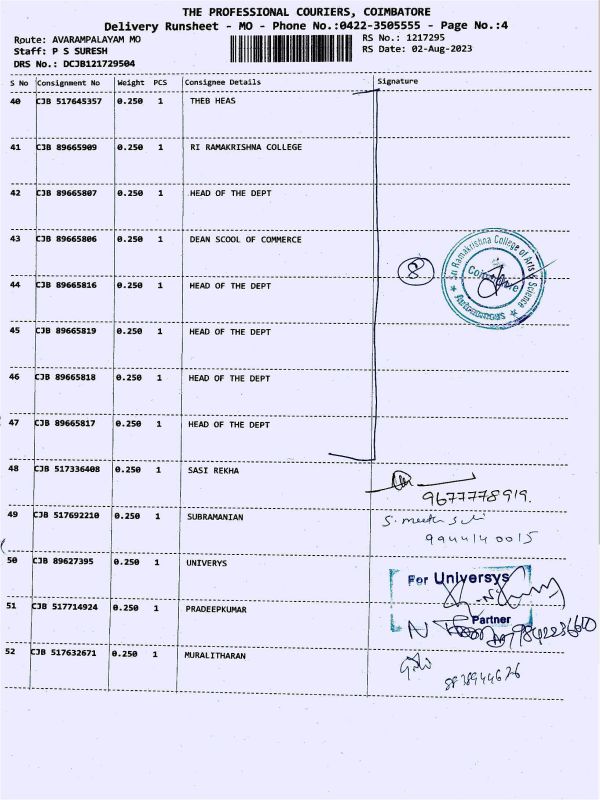 THE PROFESSIONAL COURIERS, COIMBATORE
Delivery Runsheet - MO - Phone No.:0422-3505555 - Page No.:4
Route: AVARAMPALAYAM MO RS No.: 1217295
Staff: P S SURESH RS Date: 02-Aug-2023
DRS No.: DCJB121729504
S No Consignment No Weight PCS Consignee Details Signature
40 CJB 517645357 0.250 1 THEB HEAS
41 CJB 89665909 0.250 1 RI RAMAKRISHNA COLLEGE
42 CJB 89665807 0.250 1 HEAD OF THE DEPT
43 CJB 89665806 0.250 1 DEAN SCOOL OF COMMERCE
8
Sri Ramakrishna College of Arts & Science
Coimbatore
Autonomous
44 CJB 89665816 0.250 1 HEAD OF THE DEPT
45 CJB 89665819 0.250 1 HEAD OF THE DEPT
46 CJB 89665818 0.250 1 HEAD OF THE DEPT
47 CJB 89665817 0.250 1 HEAD OF THE DEPT
48 CJB 517336408 0.250 1 SASI REKHA
9677778919.
49 CJB 517692210 0.250 1 SUBRAMANIAN
9944140015
50 CJB 89627395 0.250 1 UNIVERYS
For Universys
51 CJB 517714924 0.250 1 PRADEEPKUMAR
Partner
52 CJB 517632671 0.250 1 MURALITHARAN